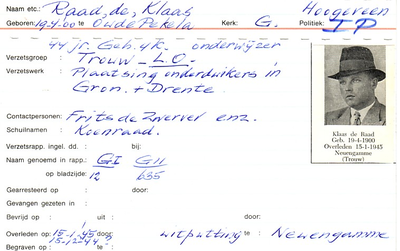 Naam etc.: Raad, de, Klaas Hoogeveen
Geboren: 19-4-00 te Oude Pekela Kerk: G. Politiek: I P
44 jr. Geh. 4 k. onderwijzer
Verzetsgroep : Trouw - L.O.
Verzetswerk : Plaatsing onderduikers in
Gron. + Drente.
Contactpersonen: Frits de Zwerver enz.
Schuilnamen : Koenraad.
Verzetsrapp. ingel. dd.: bij:
Naam genoemd in rapp.: GrI GII
op bladzijde: 12 635
Gearresteerd op : door:
Gevangen gezeten in :
Bevrijd op : uit : door:
Overleden op: 15-1-45 door: uitputting te : Neuengamme
15-12-44 ?
Begraven te :
Klaas de Raad
Geb. 19-4-1900
Overleden 15-1-1945
Neuengamme
(Trouw)